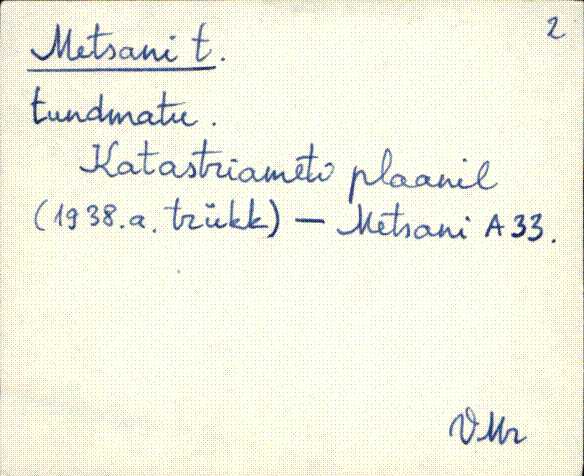 2
Metsani t.
tundmatu.
Katastriameti plaanil
(1938.a. trükk) — Metsani A 33.
VMr